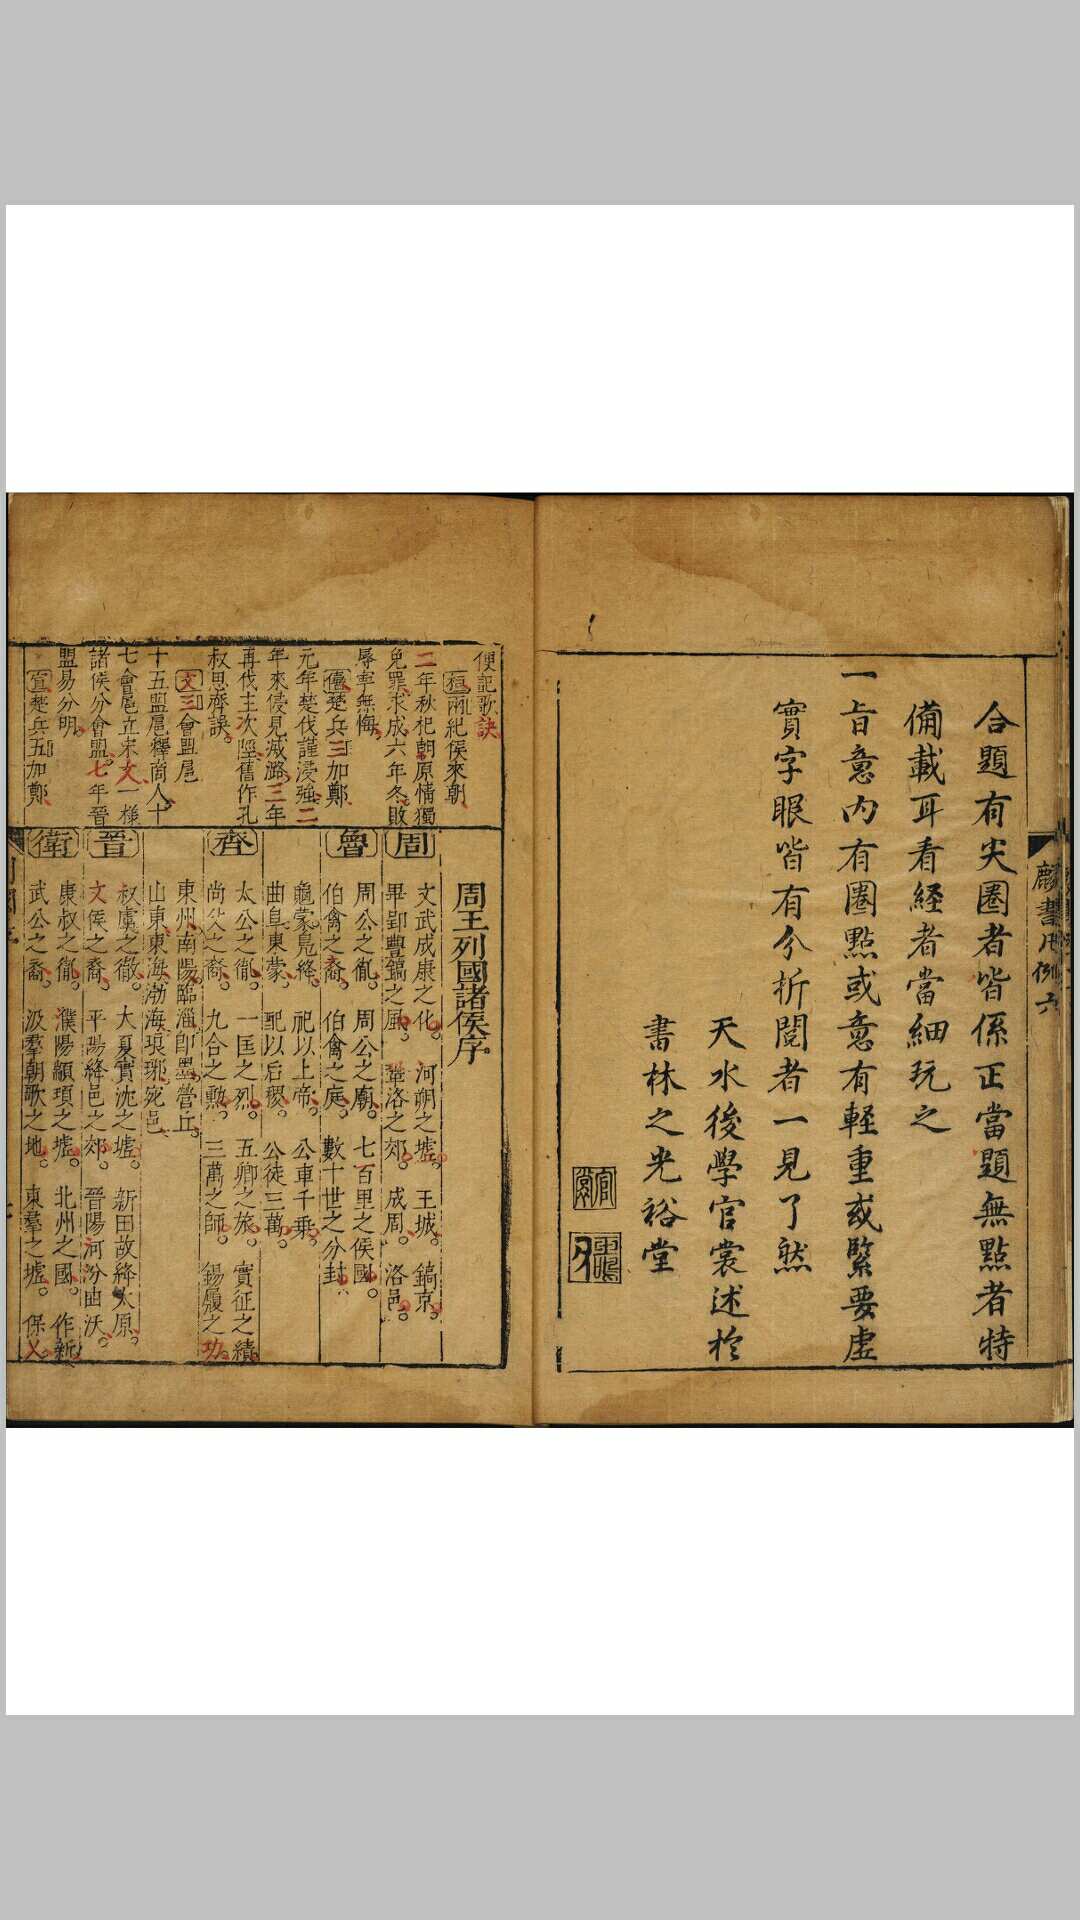 合題有尖圈者皆係正當題無點者特
備載耳看経者當細玩之
一旨意内有圈點或意有輕重或緊要虛
實字眼皆有分折閲者一見了然
天水後學官裳述於
書林之光裕堂
麟書凡例六
便記歌訣
桓兩紀侯來朝
二年秋杞朝原情獨
免罪求成六年冬敗
辱寧無悔
僖楚兵三加鄭
元年楚伐謹浸強二
年來侵見滅潞三年
再伐主次陘舊作孔
叔思齊誤。
文三會盟扈
十五盟扈釋商人十
七會扈立宋文一樣
諸侯分會盟。七年晉
盟易分明
宣楚兵五加鄭
周王列國諸侯序
周
文武成康之化。河朔之墟。王城。鎬京。
畢郢豐鎬之風。鞏洛之郊。成周。洛邑。
魯
周公之胤。周公之廟。七百里之侯國。
伯禽之裔。伯禽之庭。數十世之分封。
龜蒙鳧繹。祀以上帝。公車千乗。
曲阜東蒙。配以后稷。公徒三萬。
齊
太公之胤。一匡之烈。五卿之旅。實征之績
尚父之裔。九合之勲。三萬之師。錫履之功。
東州南陽臨淄卽墨營丘。
山東東海渤海琅琊宛邑
晉
叔虞之徽。大夏實沈之墟。新田故絳太原。
文侯之裔。平陽絳邑之郊。晉陽河汾曲沃。
衛
康叔之胤。濮陽顓頊之墟。北州之國。作新
武公之裔。汲羣朝歌之地。東羣之墟。保乂。